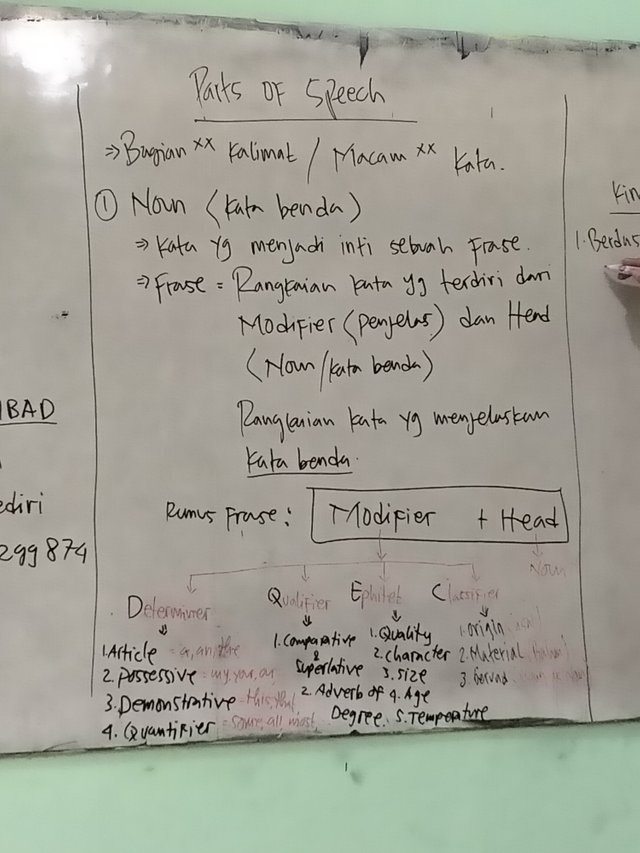 Parts OF Speech
⇒ Bagian ×× Kalimat / Macam ×× Kata.
① Noun (Kata benda)
⇒ Kata yg menjadi inti sebuah Frase.
⇒ Frase = Rangkaian kata yg terdiri dari
Modifier (penjelas) dan Head
(Noun/kata benda)
Rangkaian kata yg menjelaskan
kata benda.
Rumus Frase: Modifier + Head
Noun
Determiner
1. Article = a, an, the
2. Possessive = my, your, our
3. Demonstrative = this, that
4. Quantifier = some, all, most
Qualifier
1. Comparative
&
Superlative
2. Adverb of
Degree
Ephitet
1. Quality
2. Character
3. Size
4. Age
5. Temperature
Classifier
1. Origin
2. Material
3. Gerund
IBAD
ediri
299 874
Kin
1. Berdas